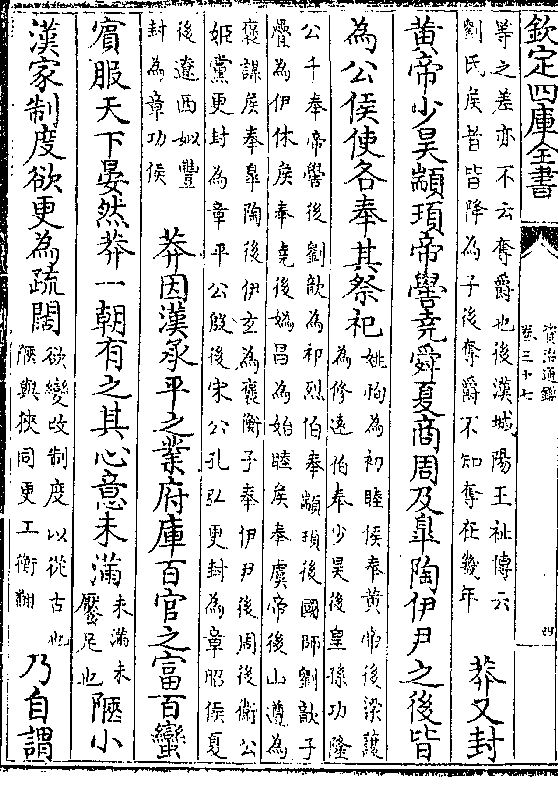 欽定四庫全書
資治通鑑
卷三十七
四
等之差亦不云奪爵也後漢城陽王祉傳云
劉氏侯者皆降為子後奪爵不知奪在幾年
莽又封
黄帝少昊顓頊帝嚳堯舜夏商周及皐陶伊尹之後皆
為公侯使各奉其祭祀
姚恂為初睦侯奉黄帝後梁護
為修逺伯奉少昊後皇孫功隆
公千奉帝嚳後劉歆為祁烈伯奉顓頊後國師劉歆子
疊為伊休侯奉堯後媯昌為始睦侯奉虞帝後山遵為
褒謀侯奉皐陶後伊玄為褒衡子奉伊尹後周後衛公
姬黨更封為章平公殷後宋公孔弘更封為章昭侯夏
後遼西姒豐
封為章功侯
莽因漢承平之業府庫百官之富百蠻
賓服天下晏然莽一朝有之其心意未滿
未滿未
饜足也
陿小
漢家制度欲更為疏闊
欲變改制度以從古也
陿與狹同更工衡翻
乃自謂